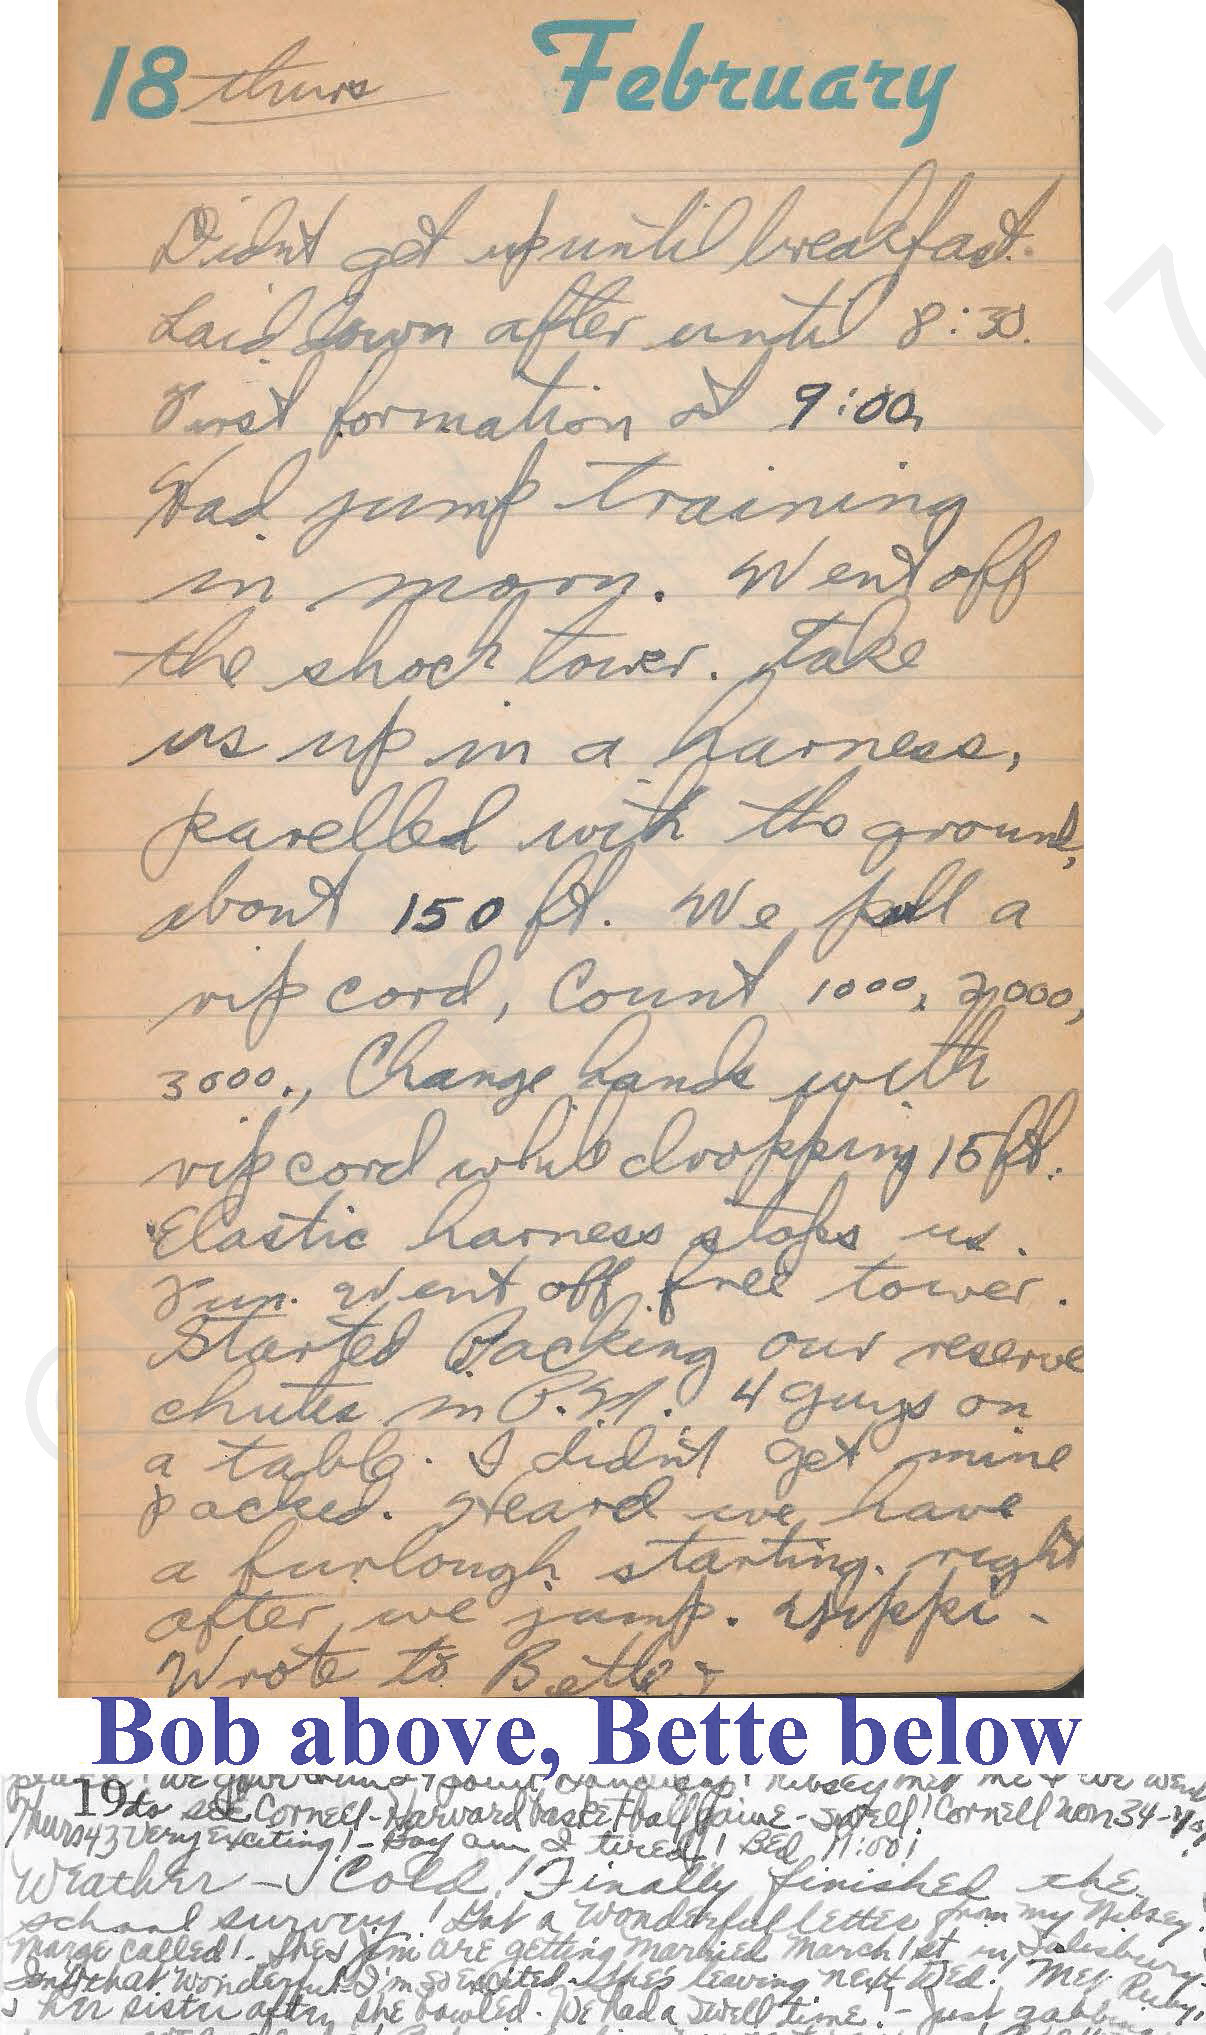 18 thurs February
Didnt get up until breakfast.
Laid down after until 8:30.
First formation at 9:00,
Had jump training
in morn. Went off
the shock tower. Take
us up in a harness,
parelled with the ground,
about 150 ft. We pull a
rip cord, Count 1000, 2,000,
3000., Change hands with
rip cord while dropping 15 ft.
Elastic harness stops us.
Fun. Went off free tower.
Started Packing our reserve
chutes in P.M. 4 guys on
a table. I didn't get mine
packed. Heard we have
a furlough starting right
after we jump. Yippi -
Wrote to Bette
Bob above, Bette below
met me & we went
19 to see Cornell-Harvard basketball game - swell! Cornell won 34-
Thurs 43 Very Exciting! - Boy am I tired! Bed 11:00!
Weather - Cold! Finally finished the
school survey! Got a wonderful letter from my Nibsey.
Marge called! She & Jim are getting married March 1st in Salisbury.
Isn't that wonderful - I'm so excited - She's leaving next Wed! Met Ruby,
& her sister after she bowled. We had a swell time! - just